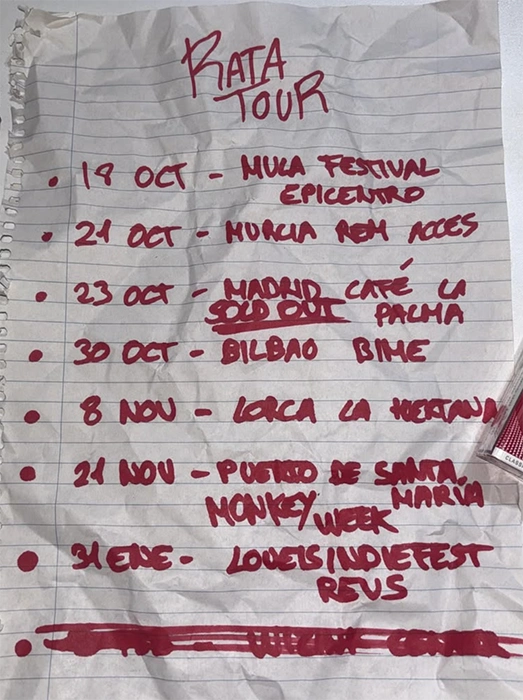 RATA
TOUR
• 19 OCT - MULA FESTIVAL
EPICENTRO
• 21 OCT - MURCIA REM ACCES
• 23 OCT - MADRID CAFÉ LA
SOLD OUT PALMA
• 30 OCT - BILBAO BIME
• 8 NOV - LORCA LA HERTANA
• 21 NOV - PUERTO DE SANTA
MONKEY WEEK MARÍA
• 31 ENE - LOVELSINDIEFEST
REUS
•
CLASS